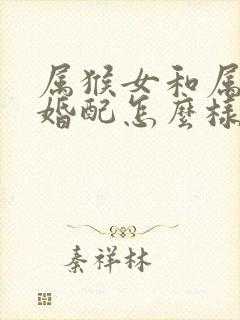 属猴女和属
婚配怎麼樣
秦祥林